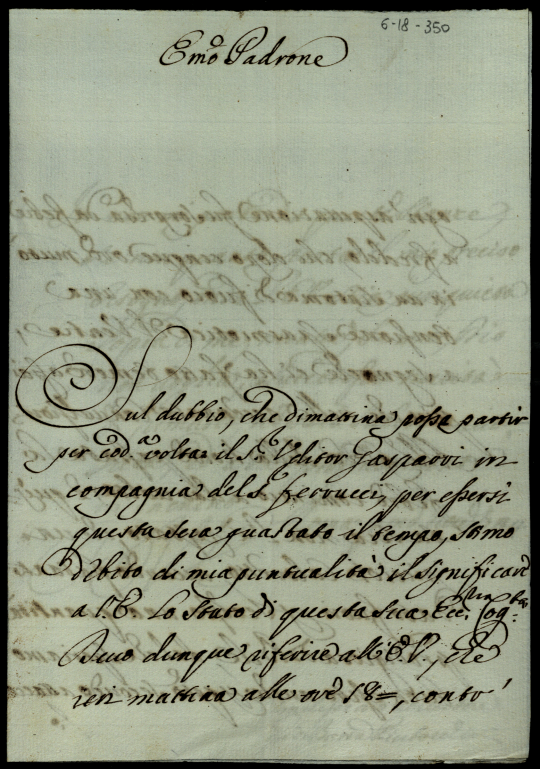 6-18-350
Emo Padrone
Sul dubbio, che dimattina possa partir
per cod.a volta il Sr. Uditor Gasparri in
compagnia del Sr. Ferrucci, per essersi
questa sera guastato il tempo, stimo
debito di mia puntualità il significare
a V.E. lo stato di questa sua Ecc.ma Cog.ta
Devo dunque riferire all'E.V., che
ieri mattina alle ore 18=, contro